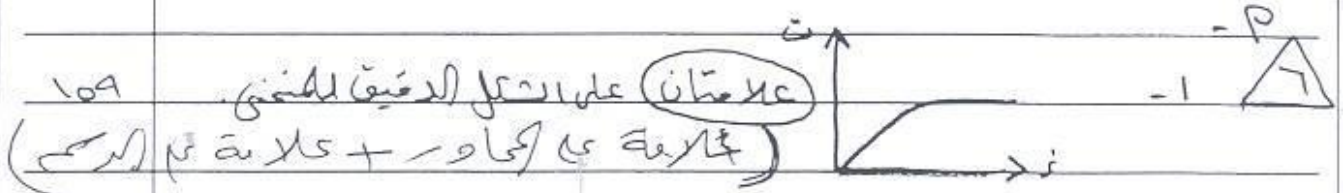 ٦ م -
ت
١ - علامتان على الشكل الدقيق للمنحنى. ١٥٩
ز
(علامة على المحاور + علامة على الرسم)